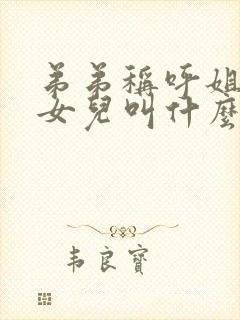 弟弟稱呼姐
女兒叫什麼
韦良寶